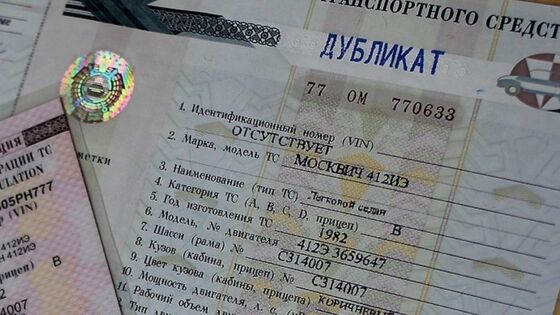 ТРАНСПОРТНОГО СРЕДСТ
ДУБЛИКАТ
77 ОМ 770633
1. Идентификационный номер (VIN)
ОТСУТСТВУЕТ
2. Марка, модель ТС МОСКВИЧ 412ИЭ
3. Наименование (тип ТС) Легковой седан
4. Категория ТС (A, B, C, D, прицеп) B
5. Год изготовления ТС 1982
6. Модель, № двигателя 412Э 3659647
7. Шасси (рама) № С314007
8. Кузов (кабина, прицеп) № С314007
9. Цвет кузова (кабины, прицепа) КОРИЧНЕВЫЙ
10. Мощность двигателя, л. с.
11. Рабочий объем
метки
ция
РАЦИИ ТС
ULATION
05РН777
(VIN)
412ИЭ
прицеп) B
412ИЭ
007